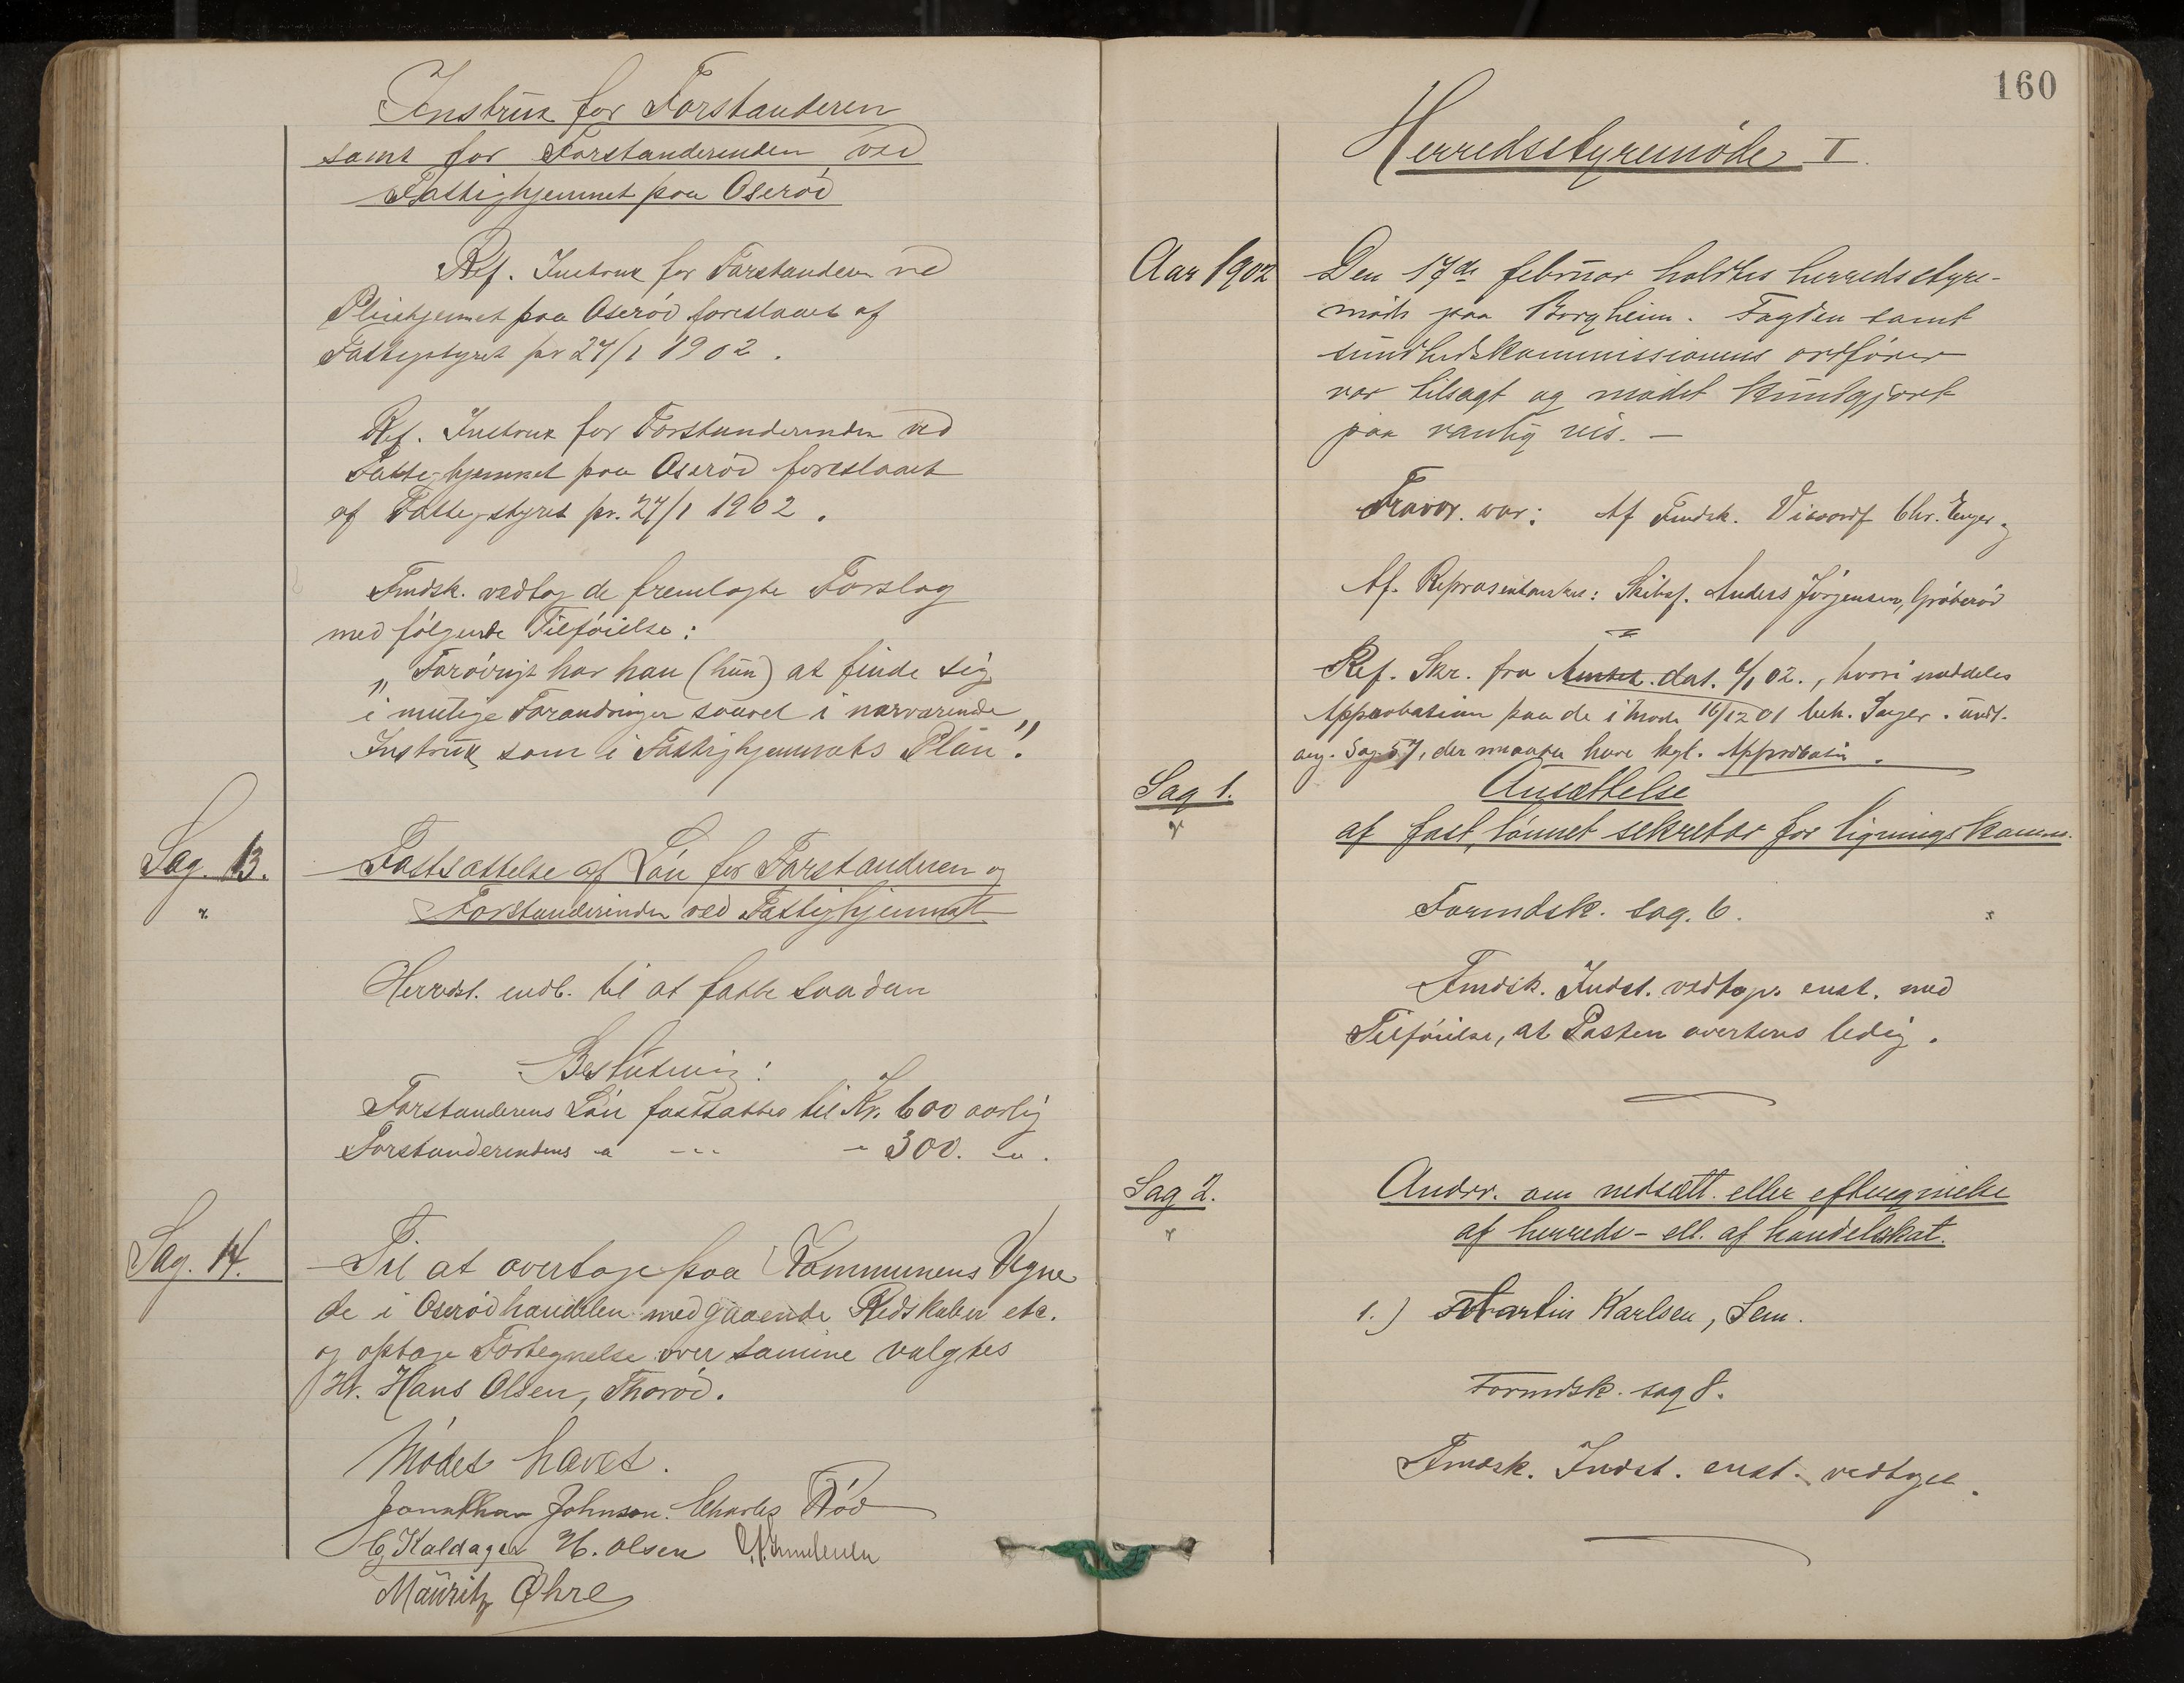 Instrux for Forstanderen
samt for Forstanderinden ved
Fattighjemmet paa Oserød
Ref. Instrux for Forstanderen ved
Pleiehjemmet paa Oserød foreslaaet af
Fattigstyret pr 27/1 1902.
Ref. Instrux for Forstanderinden ved
Fattighjemmet paa Oserød foreslaaet
af Fattigstyret pr. 27/1 1902.
Fmdsk. vedtog de fremlagte Forslag
med følgende Tilføielse:
„Forøvrigt har han (hun) at finde sig
i mulige Forandringer saavel i nærværende
Instrux som i Fattighjemmets Plan".
Sag. 13.
Fastsættelse af Løn for Forstanderen og
Forstanderinden ved Fattighjemmet
Herredst. indb. til at fatte saadan
Beslutning:
Forstanderens Løn fastsættes til Kr. 600 aarlig
Forstanderindens " --- - 300. - " .
Sag. 14.
Til at overtage paa Kommunens Vegne
de i Oserødhandelen medgaaende Redskaber etc.
og optage Fortegnelse over samme valgtes
Hr. Hans Olsen, Thorød.
Mødet hævet.
Jonathan Johnson. Charles Rød
C. Kaldager H. Olsen
Mauritz Øhre
160
Herredsstyremøde I.
Aar 1902
Den 17de februar holdtes herredsstyre-
møde paa Borgheim. Fogden samt
sundhedskommissionens ordfører
var tilsagt og mødet kundgjort
paa vanlig vis. —
Fravær. var: Af Fmdsk. Viceordf Chr. Enger og
Af Repræsentanter: Skibsf. Anders Jørgensen, Grøterød
Ref. Skr. fra Amtet dat. 6/1 02., hvori meddeles
Approbation paa de i Møde 16/12 01 beh. Sager. undt.
ang. Sag 57, der maatte have kgl. Approbation.
Sag 1.
Ansættelse
af fast, lønnet sekretær for ligningskomm.
Formdsk. sag. 6.
Fmdsk. Indst. vedtoges enst. med
Tilføielse, at Posten averteres ledig.
Sag 2.
Andrr. om nedsætt. eller eftergivelse
af herreds- ell. af handelsskat.
1.) Martin Karlsen, Sem.
Formdsk. sag 8.
Fmdsk. Indst. enst. vedtoges.